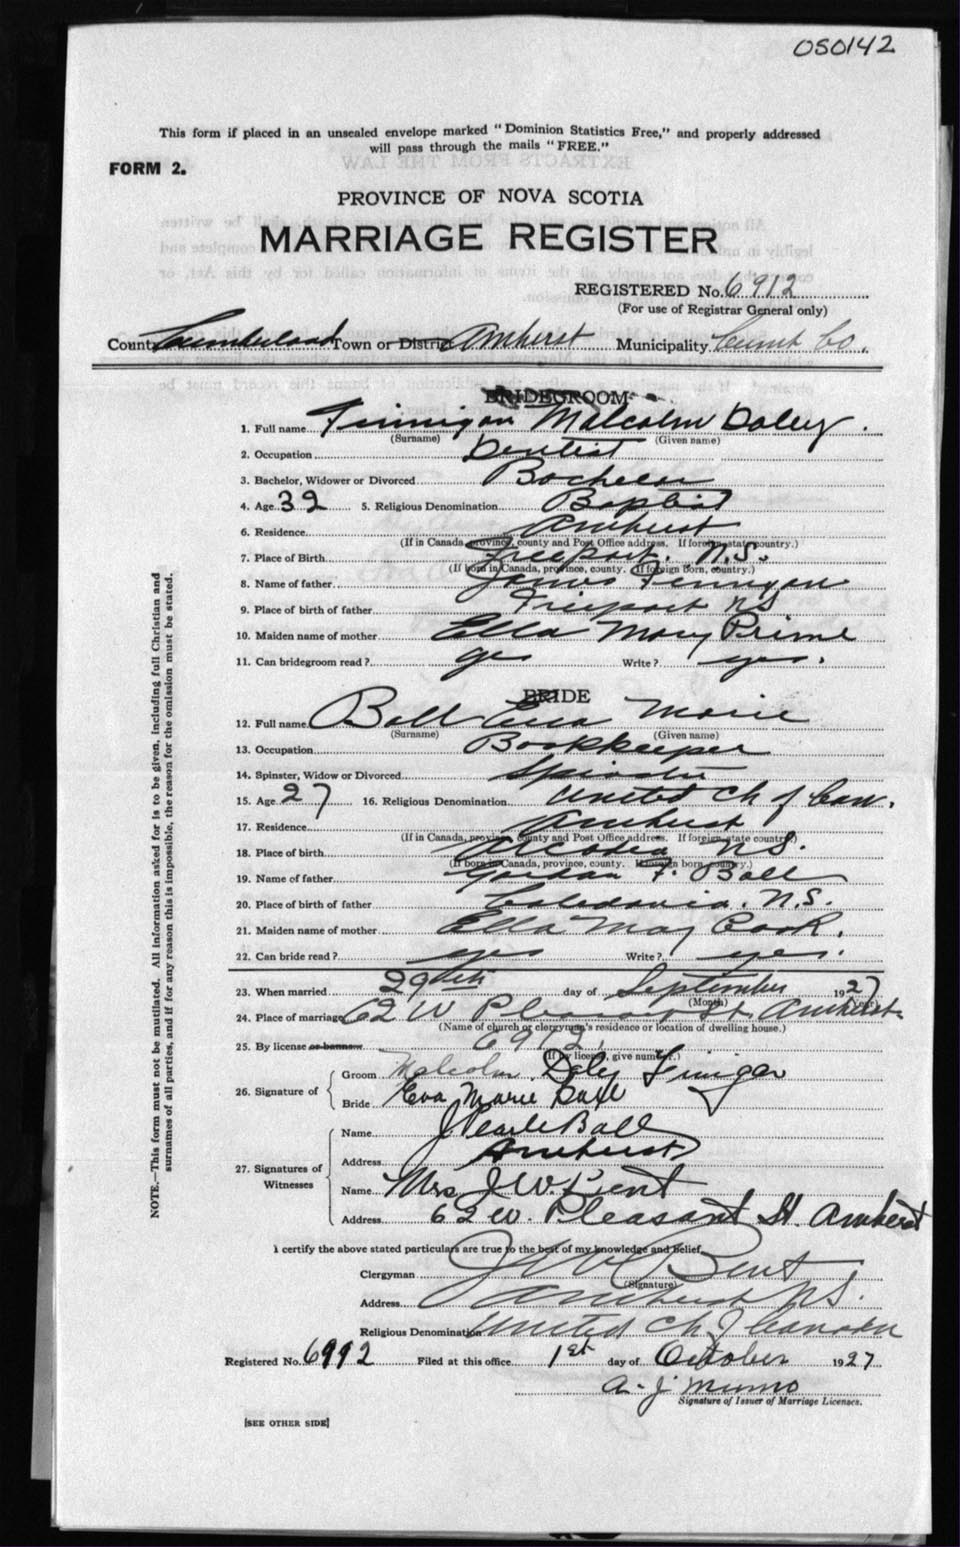 050142
This form if placed in an unsealed envelope marked "Dominion Statistics Free," and properly addressed
will pass through the mails "FREE."
FORM 2.
PROVINCE OF NOVA SCOTIA
MARRIAGE REGISTER
REGISTERED No. 6912
(For use of Registrar General only)
County Cumberland Town or District Amherst Municipality Cumb Co.
BRIDEGROOM
1. Full name Finnigan Malcolm Daley.
(Surname) (Given name)
2. Occupation Dentist
3. Bachelor, Widower or Divorced Bachelor
4. Age 32 5. Religious Denomination Baptist
6. Residence Amherst
(If in Canada, province, county and Post Office address. If foreign state country.)
7. Place of Birth Freeport. N.S.
(If born in Canada, province, county. If foreign born, country.)
8. Name of father James Finnigan
9. Place of birth of father Freeport NS
10. Maiden name of mother Ella Mary Prime
11. Can bridegroom read? yes Write? yes.
BRIDE
12. Full name Ball Eva Marie
(Surname) (Given name)
13. Occupation Bookkeeper
14. Spinster, Widow or Divorced Spinster
15. Age 27 16. Religious Denomination United Ch of Can.
17. Residence Amherst
(If in Canada, province, county and Post Office address. If foreign, state country.)
18. Place of birth NS.
(If born in Canada, province, county. If foreign born, country.)
19. Name of father Gordon F. Ball
20. Place of birth of father Caledonia. N.S.
21. Maiden name of mother Ella May Cook.
22. Can bride read? yes Write? yes.
23. When married 29th day of September 1927
(Month) (Year)
24. Place of marriage 62 W Pleasant St. Amherst
(Name of church or clergyman's residence or location of dwelling house.)
25. By license or banns 6912
(If by license, give number.)
26. Signature of
Groom Malcolm Daley Finigan
Bride Eva Marie Ball
27. Signatures of Witnesses
Name J Pearle Ball
Address Amherst
Name Mrs J. W. Bent
Address 62 W. Pleasant St. Amherst
I certify the above stated particulars are true to the best of my knowledge and belief.
Clergyman J W Bent
(Signature)
Address Amherst NS.
Religious Denomination United Ch of Canada
Registered No. 6912 Filed at this office 1st day of October 1927
A. J. Munro
Signature of Issuer of Marriage Licenses.
[SEE OTHER SIDE]
NOTE.—This form must not be mutilated. All information asked for is to be given, including full Christian and
surnames of all parties, and if for any reason this is impossible, the reason for the omission must be stated.